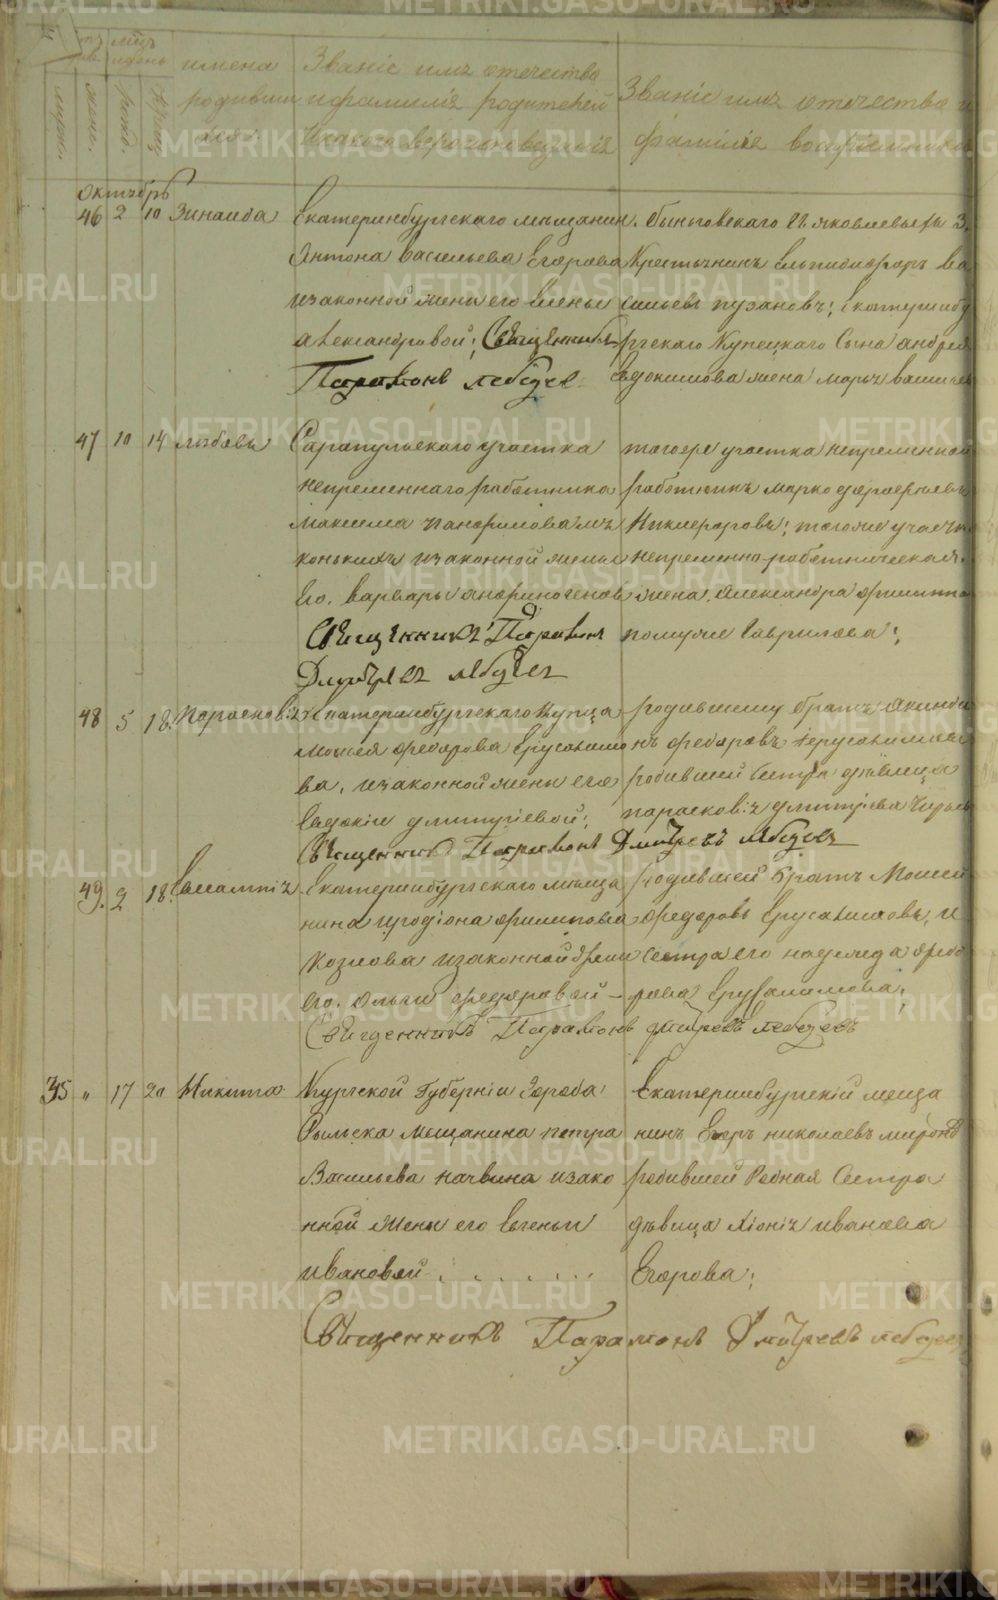 имена
родивши
Званіе имя отечество
и фамилія родителей
Званіе имя отечество и
фамилія
Октябрь
46 2 10 Зинаида
Екатеринбургскаго мещанин.
Антона Васильева Егорова
и законной жены его Елены
Александровой; Священникъ
Парамонъ Лебедев
Яковлевыхъ З.
Крестьянинъ Ельпидифоръ Ва
сильевъ Пузановъ; Екатеринбу
ргскаго Купецкаго Сына Андрея
Евдокимова жена Марья Василье
47 10 14 Любовь
Сарапульскаго участка
непременнаго работника
Максима Панфилова
и законной жены
Его. Варвары Анфиногенов
Священникъ Парамон
Дмитріев Лебедев
тогоже участка непременной
работникъ Марко
Никифоровъ; тогоже участк
непременно-работническая
жена. Александра Филиппо
Гаврилова;
48 5 18. Парасковія
Екатеринбургскаго Купца
Мосея Федорова Ерусалимо
ва, и законной жены его
Евдокіи Димитріевой;
Священникъ Парамонъ Дмитревъ Лебедев
родившему братъ Акинфі
Федоровъ Іерусалимов
родившей Сестра девица
Парасковія Димитріева
49. 2 18. Евлампія
Екатеринбургскаго меща
нина Иродіона Филипова
Козлова и законной жены
его. Ольги Федоровой –
Священникъ Парамонъ Дмитревъ Лебедевъ
родившей братъ Мосей
Федоровъ Ерусалимовъ, и
сестра его Надежда Федо
рова Ерусалимова;
35 " 17 20 Никита
Курской Губерніи Города
Рыльска мещанина Петра
Васильева и зако
нной жены его Евгеньи
Ивановой . . . . . . .
Екатеринбургскій меща
нинъ Егоръ Николаевъ Миронов
родившей Родная Сестра
девица Иванова
Егорова;
Священникъ Парамонъ Дмитревъ Лебедев
METRIKI.GASO-URAL.RU